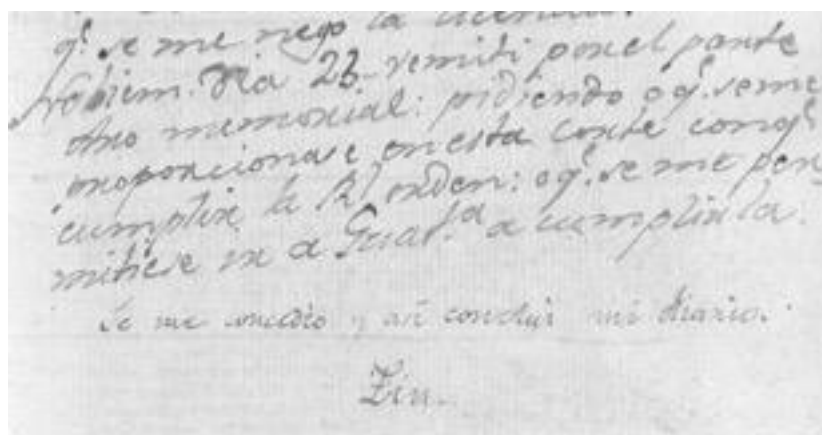 q.e se me nego la licencia.
Nobiem. Dia 23 remiti por el parte
otro memorial: pidiendo o q.e se me
proporcionase en esta corte con q.e
cumplir la R.l orden: o q.e se me per
mitiese ir a Guat.a a cumplirla.
Se me concedio y asi conclui mi diario.
Fin.